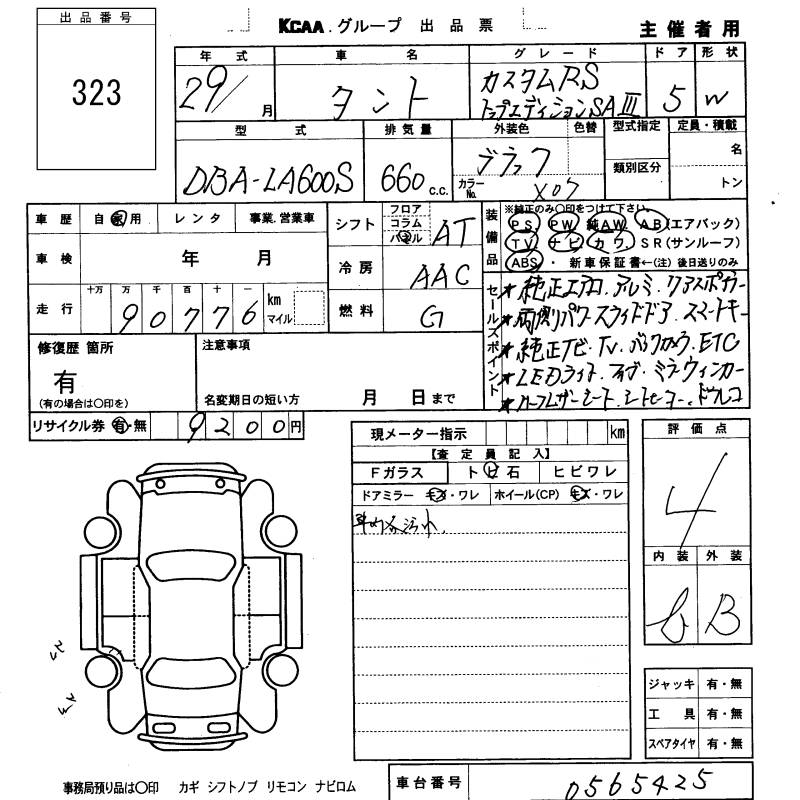 出品番号
323
KCAA.グループ 出品票
主催者用
年式 車名 グレード ドア 形状
29/ 月 タント カスタムRS 5 W
トップエディションSAⅢ
型式 排気量 外装色 色替 型式指定 定員・積載
DBA-LA600S 660 c.c. ブラック 類別区分 名
カラーNo. X07 トン
車歴 自家用 レンタ 事業.営業車
シフト フロア コラム パネル AT
車検 年 月
冷房 AAC
走行 十万 万 千 百 十 一
90776 km マイル
燃料 G
装備品 ※純正のみ〇印をつけて下さい。
PS. PW. 純AW. AB(エアバック)
TV. ナビ. カワ. SR(サンルーフ)
ABS ・ 新車保証書←(注) 後日送りのみ
セールスポイント
★純正エアロ.アルミ.リアスポイラー
★両側パワースライドドア スマートキー
★純正ナビ.TV.バックカメラ.ETC
★LEDライト.フォグ.ミラーウィンカー
★ハーフレザーシート.シートヒーター.ドラレコ
修復歴 箇所
有
(有の場合は〇印を)
注意事項
名変期日の短い方 月 日まで
リサイクル券 有・無 9200円
現メーター指示 km
【査定員記入】
Fガラス トビ石 ヒビワレ
ドアミラー キズ・ワレ ホイール(CP) キズ・ワレ
評価点
4
内装 外装
b B
ジャッキ 有・無
工具 有・無
スペアタイヤ 有・無
事務局預り品は〇印 カギ シフトノブ リモコン ナビロム
車台番号 0565425